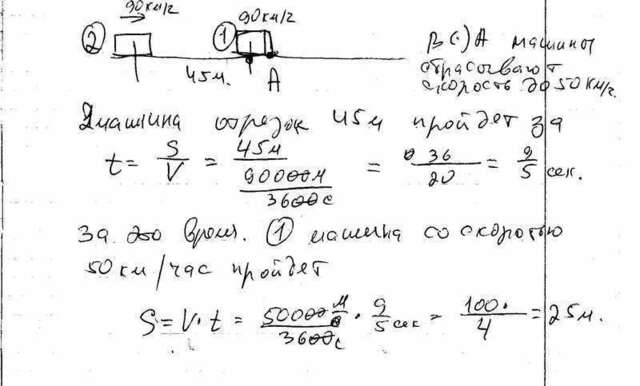 90км/г 90км/г
② ① В (·) А машины
сбрасывают
скорость до 50 км/г.
45м. А
2 машина отрезок 45м пройдет за
t = S/V = 45м / (90000м/3600с) = 36/20 = 9/5 сек.
За это время. ① машина со скоростью
50 км/час пройдет
S = V · t = 50000м/3600с · 9/5 сек = 100·/4 = 25м.